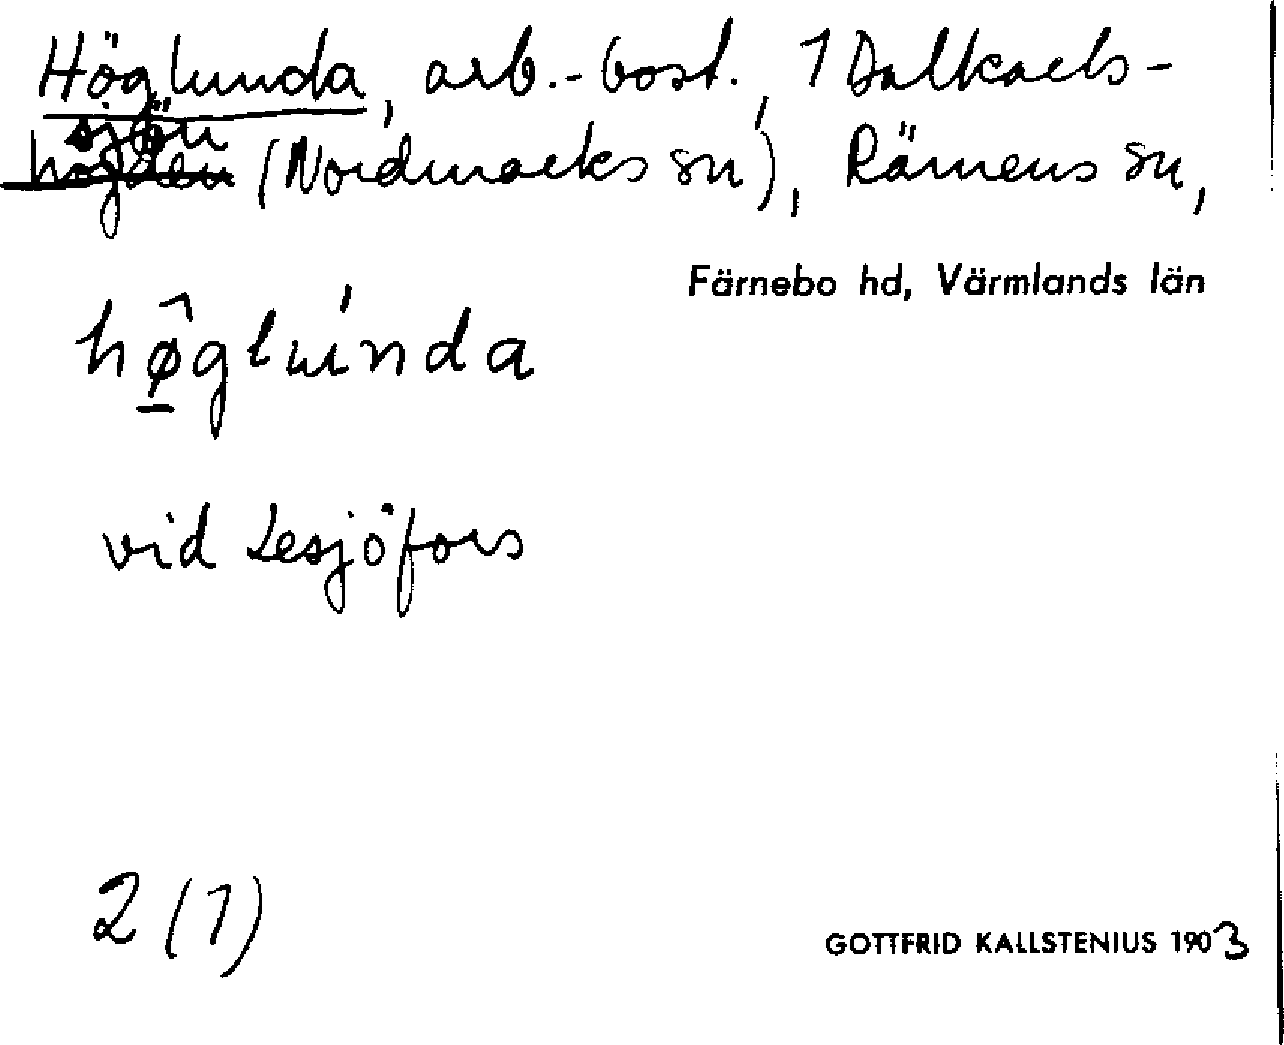 Höglunda, arb.-bost., 1 Dalkarls-
sjön
höjden (Nordmarks sn), Rämens sn,
Färnebo hd, Värmlands län
hø̂glúnda
vid Lesjöfors
2 (1)
GOTTFRID KALLSTENIUS 1903